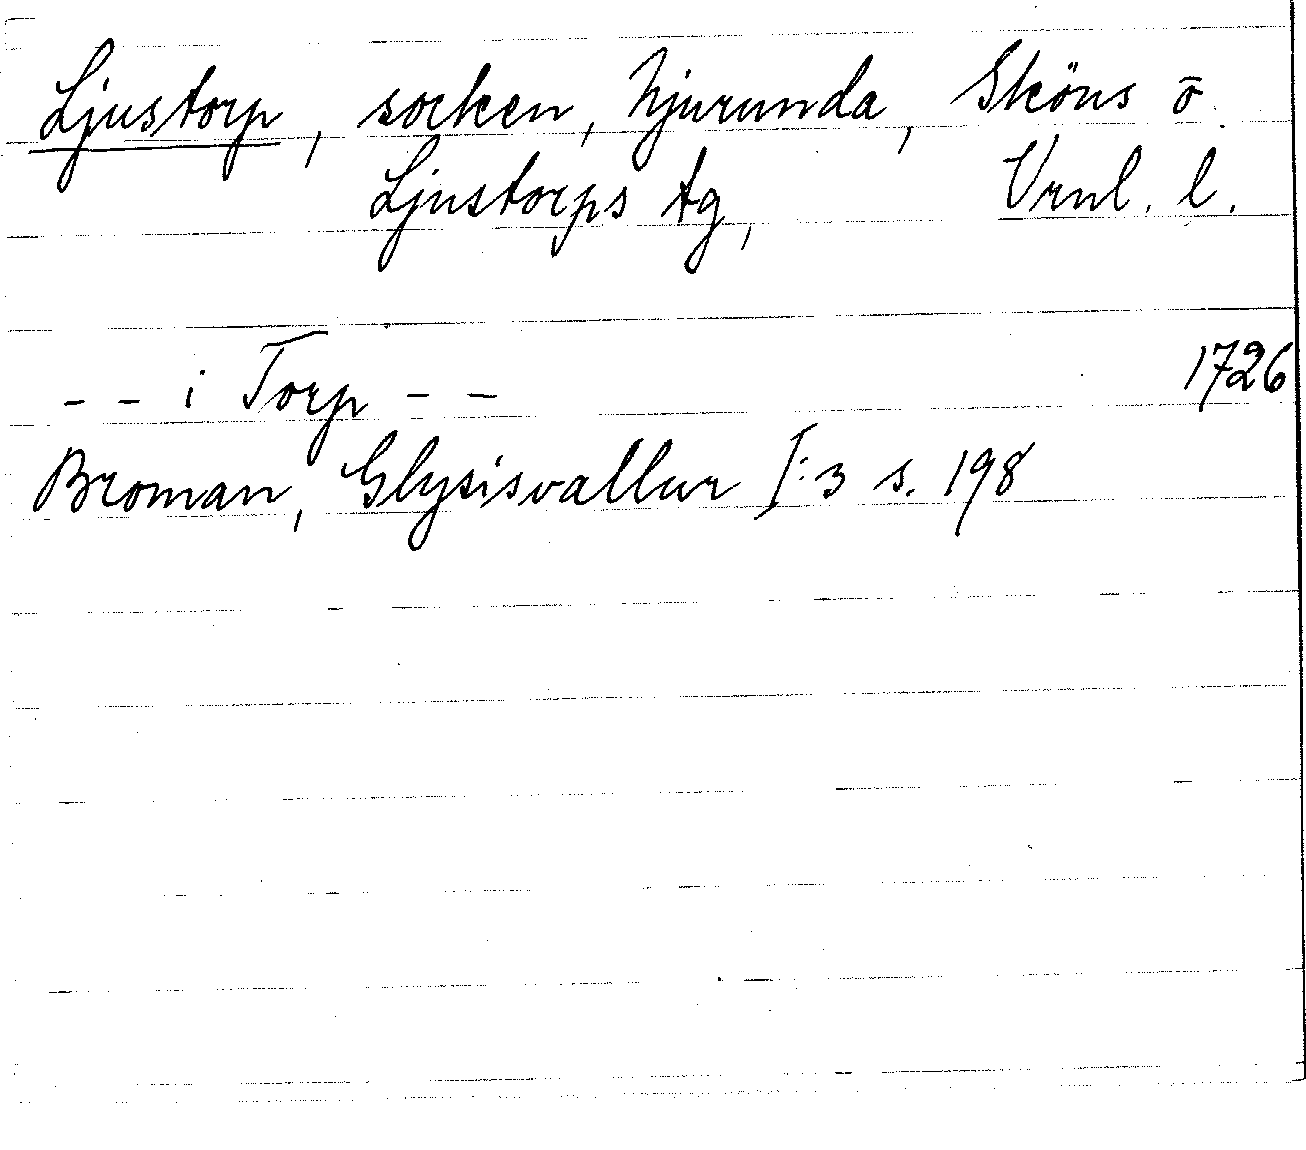 Ljustorp, socken, Njurunda, Sköns o.
Ljustorps tg, Vrnl. l.
-- i Torp -- 1726
Broman, Glysisvallur I:3 s. 198